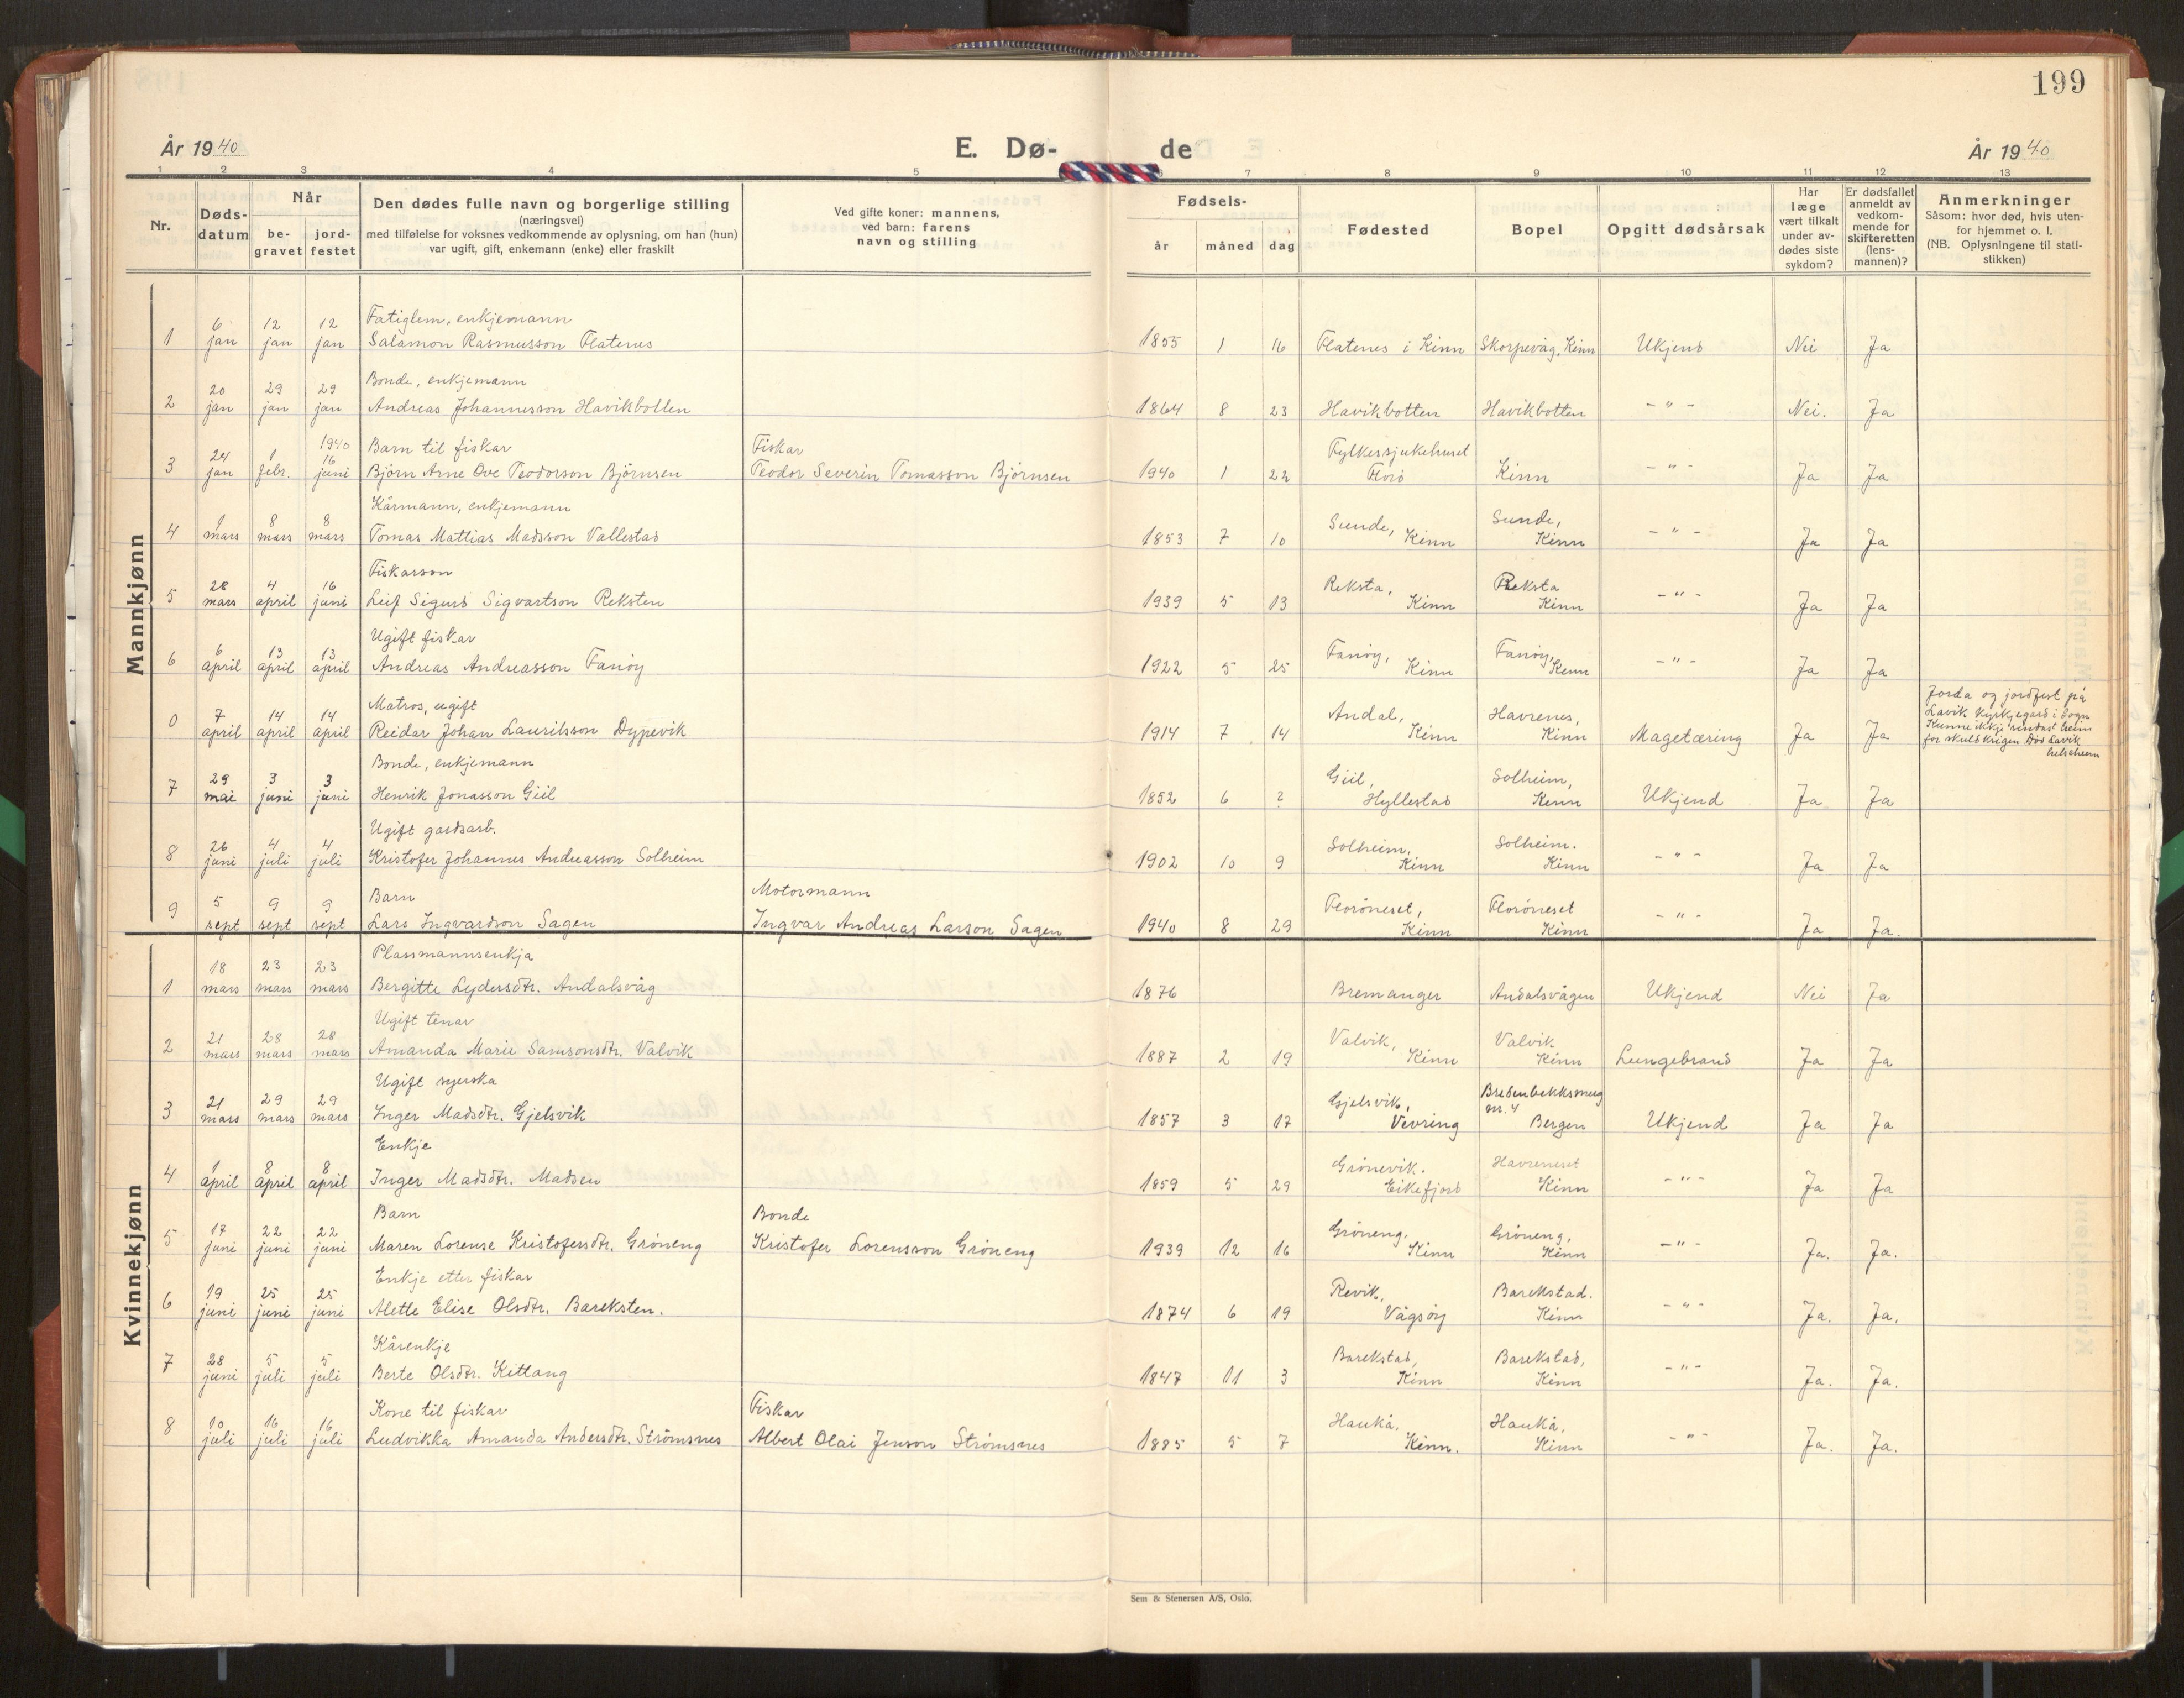 199
År 1940
E. Dø-
de
År 1940
1 2 3 4 5 6 7 8 9 10 11 12 13
Nr.
Døds-
datum
Når
be-
gravet
jord-
festet
Den dødes fulle navn og borgerlige stilling
(næringsvei)
med tilføielse for voksnes vedkommende av oplysning, om han (hun)
var ugift, gift, enkemann (enke) eller fraskilt
Ved gifte koner: mannens,
ved barn: farens
navn og stilling
Fødsels-
år måned dag
Fødested
Bopel
Opgitt dødsårsak
Har
læge
vært tilkalt
under av-
dødes siste
sykdom?
Er dødsfallet
anmeldt av
vedkom-
mende for
skifteretten
(lens-
mannen)?
Anmerkninger
Såsom: hvor død, hvis uten-
for hjemmet o. l.
(NB. Oplysningene til stati-
stikken)
Mannkjønn
Fatiglem, enkjemann
1 6 jan 12 jan 12 jan Salamon Rasmusson Flatenes 1855 1 16 Flatenes i Kinn Skorpevåg, Kinn Ukjend Nei Ja
Bonde, enkjemann
2 20 jan 29 jan 29 jan Andreas Johannesson Havikbotten 1864 8 23 Havikbotten Havikbotten - " - Nei. Ja
1940 Barn til fiskar Fiskar Fylkessjukehuset
3 24 jan 1 febr. 16 juni Björn Arne Ove Teodorson Björnsen Teodor Severin Tomasson Björnsen 1940 1 22 Florö Kinn - " - Ja Ja
Kårmann, enkjemann Sunde, Sunde,
4 1 mars 8 mars 8 mars Tomas Mattias Madsson Vallestad 1853 7 10 Kinn Kinn - " - Ja Ja
Fiskarson Reksta, Reksta
5 28 mars 4 april 16 juni Leif Sigurd Sigvartson Reksten 1939 5 13 Kinn Kinn - " - Ja Ja
Ugift fiskar Fanöy, Fanöy,
6 6 april 13 april 13 april Andreas Andreasson Fanöy 1922 5 25 Kinn Kinn - " - Ja Ja
Matros, ugift Andal, Havrenes,
0 7 april 14 april 14 april Reidar Johan Lauritsson Dypevik 1914 7 14 Kinn Kinn Magetæring Ja Ja
Jorda og jordfest på
Lavik kyrkjegard i Sogn
Kunne ikkje sendast heim
for skuld krigen Död Lavik
helseheim
Bonde, enkjemann Giil, Solheim,
7 29 mai 3 juni 3 juni Henrik Jonasson Giil 1852 6 2 Hyllestad Kinn Ukjend Ja Ja
Ugift gardsarb. Solheim, Solheim.
8 26 juni 4 juli 4 juli Kristofer Johannes Andreasson Solheim 1902 10 9 Kinn Kinn - " - Ja Ja
Barn Motormann Floröneset, Floröneset
9 5 sept 9 sept 9 sept Lars Ingvardson Sagen Ingvar Andreas Larson Sagen 1940 8 29 Kinn Kinn - " - Ja Ja.
Kvinnekjønn
Plassmannsenkja
1 18 mars 23 mars 23 mars Bergitte Lydersdtr. Andalsvåg 1876 Bremanger Andalsvågen Ukjend Nei Ja
Ugift tenar Valvik, Valvik
2 21 mars 28 mars 28 mars Amanda Marie Samsonsdtr. Valvik 1887 2 19 Kinn Kinn Lungebrand Ja Ja
Ugift syerska Gjelsvik, Bredenbekksmug nr. 4
3 21 mars 29 mars 29 mars Inger Madsdtr. Gjelsvik 1857 3 17 Vevring Bergen Ukjend Ja Ja
Enkje Grönevik. Havreneset
4 1 april 8 april 8 april Inger Madsdtr. Madsen 1859 5 29 Eikefjord Kinn - " - Ja Ja
Barn Bonde Gröneng, Gröneng,
5 17 juni 22 juni 22 juni Maren Lorense Kristofersdtr. Gröneng Kristofer Lorensson Gröneng 1939 12 16 Kinn Kinn - " - Ja. Ja.
Enkje etter fiskar Revik, Barekstad.
6 19 juni 25 juni 25 juni Alette Elise Olsdtr. Bareksten. 1874 6 19 Vågsöy Kinn - " - Ja. Ja.
Kårenkje Barekstad, Barekstad,
7 28 juni 5 juli 5 juli Berte Olsdtr. Kittang 1847 11 3 Kinn Kinn - " - Ja. Ja.
Kone til fiskar Fiskar Haukå, Haukå,
8 10 juli 16 juli 16 juli Ludvikka Amanda Andersdtr. Strömsnes Albert Olai Jenson Strömsnes 1885 5 7 Kinn. Kinn - " - Ja. Ja.
Sem & Stenersen A/S, Oslo.